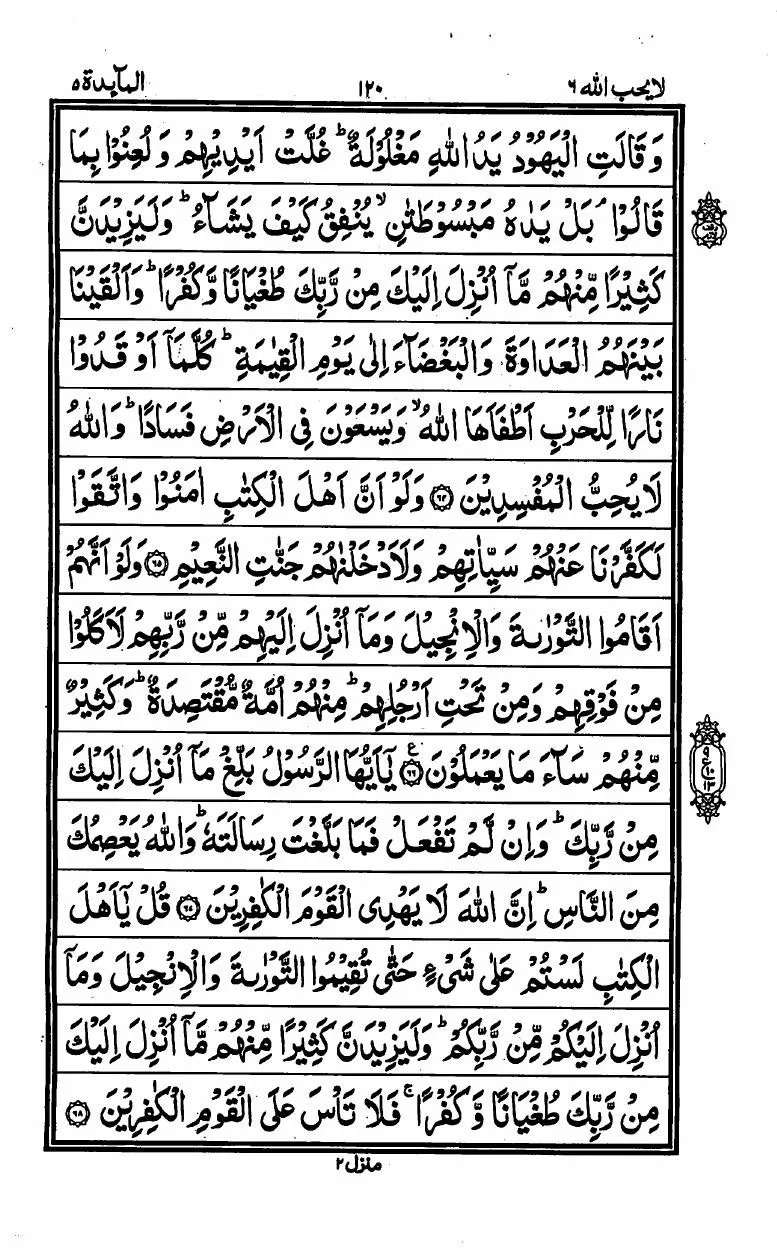 لا يحب الله ٦
١٢٠
المآئدة ٥
وَ قَالَتِ الْيَهُوْدُ يَدُ اللّٰهِ مَغْلُوْلَةٌ ؕ غُلَّتْ اَيْدِيْهِمْ وَ لُعِنُوْا بِمَا
قَالُوْا ۘ بَلْ يَدٰهُ مَبْسُوْطَتٰنِ ۙ يُنْفِقُ كَيْفَ يَشَآءُ ؕ وَلَيَزِيْدَنَّ
كَثِيْرًا مِّنْهُمْ مَّاۤ اُنْزِلَ اِلَيْكَ مِنْ رَّبِّكَ طُغْيَانًا وَّكُفْرًا ؕ وَاَلْقَيْنَا
بَيْنَهُمُ الْعَدَاوَةَ وَالْبَغْضَآءَ اِلٰى يَوْمِ الْقِيٰمَةِ ؕ كُلَّمَاۤ اَوْقَدُوْا
نَارًا لِّلْحَرْبِ اَطْفَاَهَا اللّٰهُ ۙ وَيَسْعَوْنَ فِى الْاَرْضِ فَسَادًا ؕ وَاللّٰهُ
لَا يُحِبُّ الْمُفْسِدِيْنَ ۝٦٤ وَلَوْ اَنَّ اَهْلَ الْكِتٰبِ اٰمَنُوْا وَاتَّقَوْا
لَكَفَّرْنَا عَنْهُمْ سَيِّاٰتِهِمْ وَلَاَدْخَلْنٰهُمْ جَنّٰتِ النَّعِيْمِ ۝٦٥ وَلَوْ اَنَّهُمْ
اَقَامُوا التَّوْرٰىةَ وَالْاِنْجِيْلَ وَمَاۤ اُنْزِلَ اِلَيْهِمْ مِّنْ رَّبِّهِمْ لَاَكَلُوْا
مِنْ فَوْقِهِمْ وَمِنْ تَحْتِ اَرْجُلِهِمْ ؕ مِنْهُمْ اُمَّةٌ مُّقْتَصِدَةٌ ؕ وَكَثِيْرٌ
مِّنْهُمْ سَآءَ مَا يَعْمَلُوْنَ ۝٦٦ يٰۤاَيُّهَا الرَّسُوْلُ بَلِّغْ مَاۤ اُنْزِلَ اِلَيْكَ
مِنْ رَّبِّكَ ؕ وَاِنْ لَّمْ تَفْعَلْ فَمَا بَلَّغْتَ رِسَالَتَهٗ ؕ وَاللّٰهُ يَعْصِمُكَ
مِنَ النَّاسِ ؕ اِنَّ اللّٰهَ لَا يَهْدِى الْقَوْمَ الْكٰفِرِيْنَ ۝٦٧ قُلْ يٰۤاَهْلَ
الْكِتٰبِ لَسْتُمْ عَلٰى شَىْءٍ حَتّٰى تُقِيْمُوا التَّوْرٰىةَ وَالْاِنْجِيْلَ وَمَاۤ
اُنْزِلَ اِلَيْكُمْ مِّنْ رَّبِّكُمْ ؕ وَلَيَزِيْدَنَّ كَثِيْرًا مِّنْهُمْ مَّاۤ اُنْزِلَ اِلَيْكَ
مِنْ رَّبِّكَ طُغْيَانًا وَّكُفْرًا ۚ فَلَا تَاْسَ عَلَى الْقَوْمِ الْكٰفِرِيْنَ ۝٦٨
منزل ٢